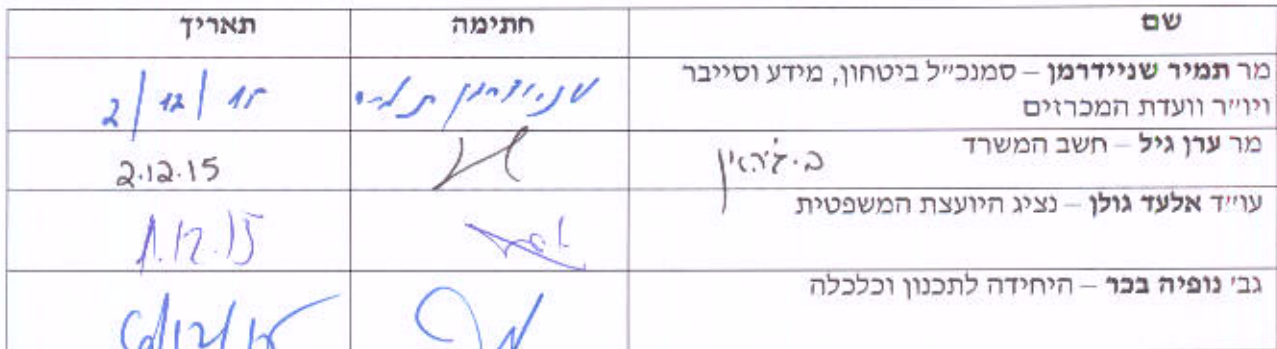 שם חתימה תאריך
מר תמיר שניידרמן – סמנכ״ל ביטחון, מידע וסייבר
ויו״ר וועדת המכרזים שניידרמן תמיר 2/12/15
מר ערן גיל – חשב המשרד 2.12.15
עו״ד אלעד גולן – נציג היועצת המשפטית 1.12.15
גבי נופיה בכר – היחידה לתכנון וכלכלה